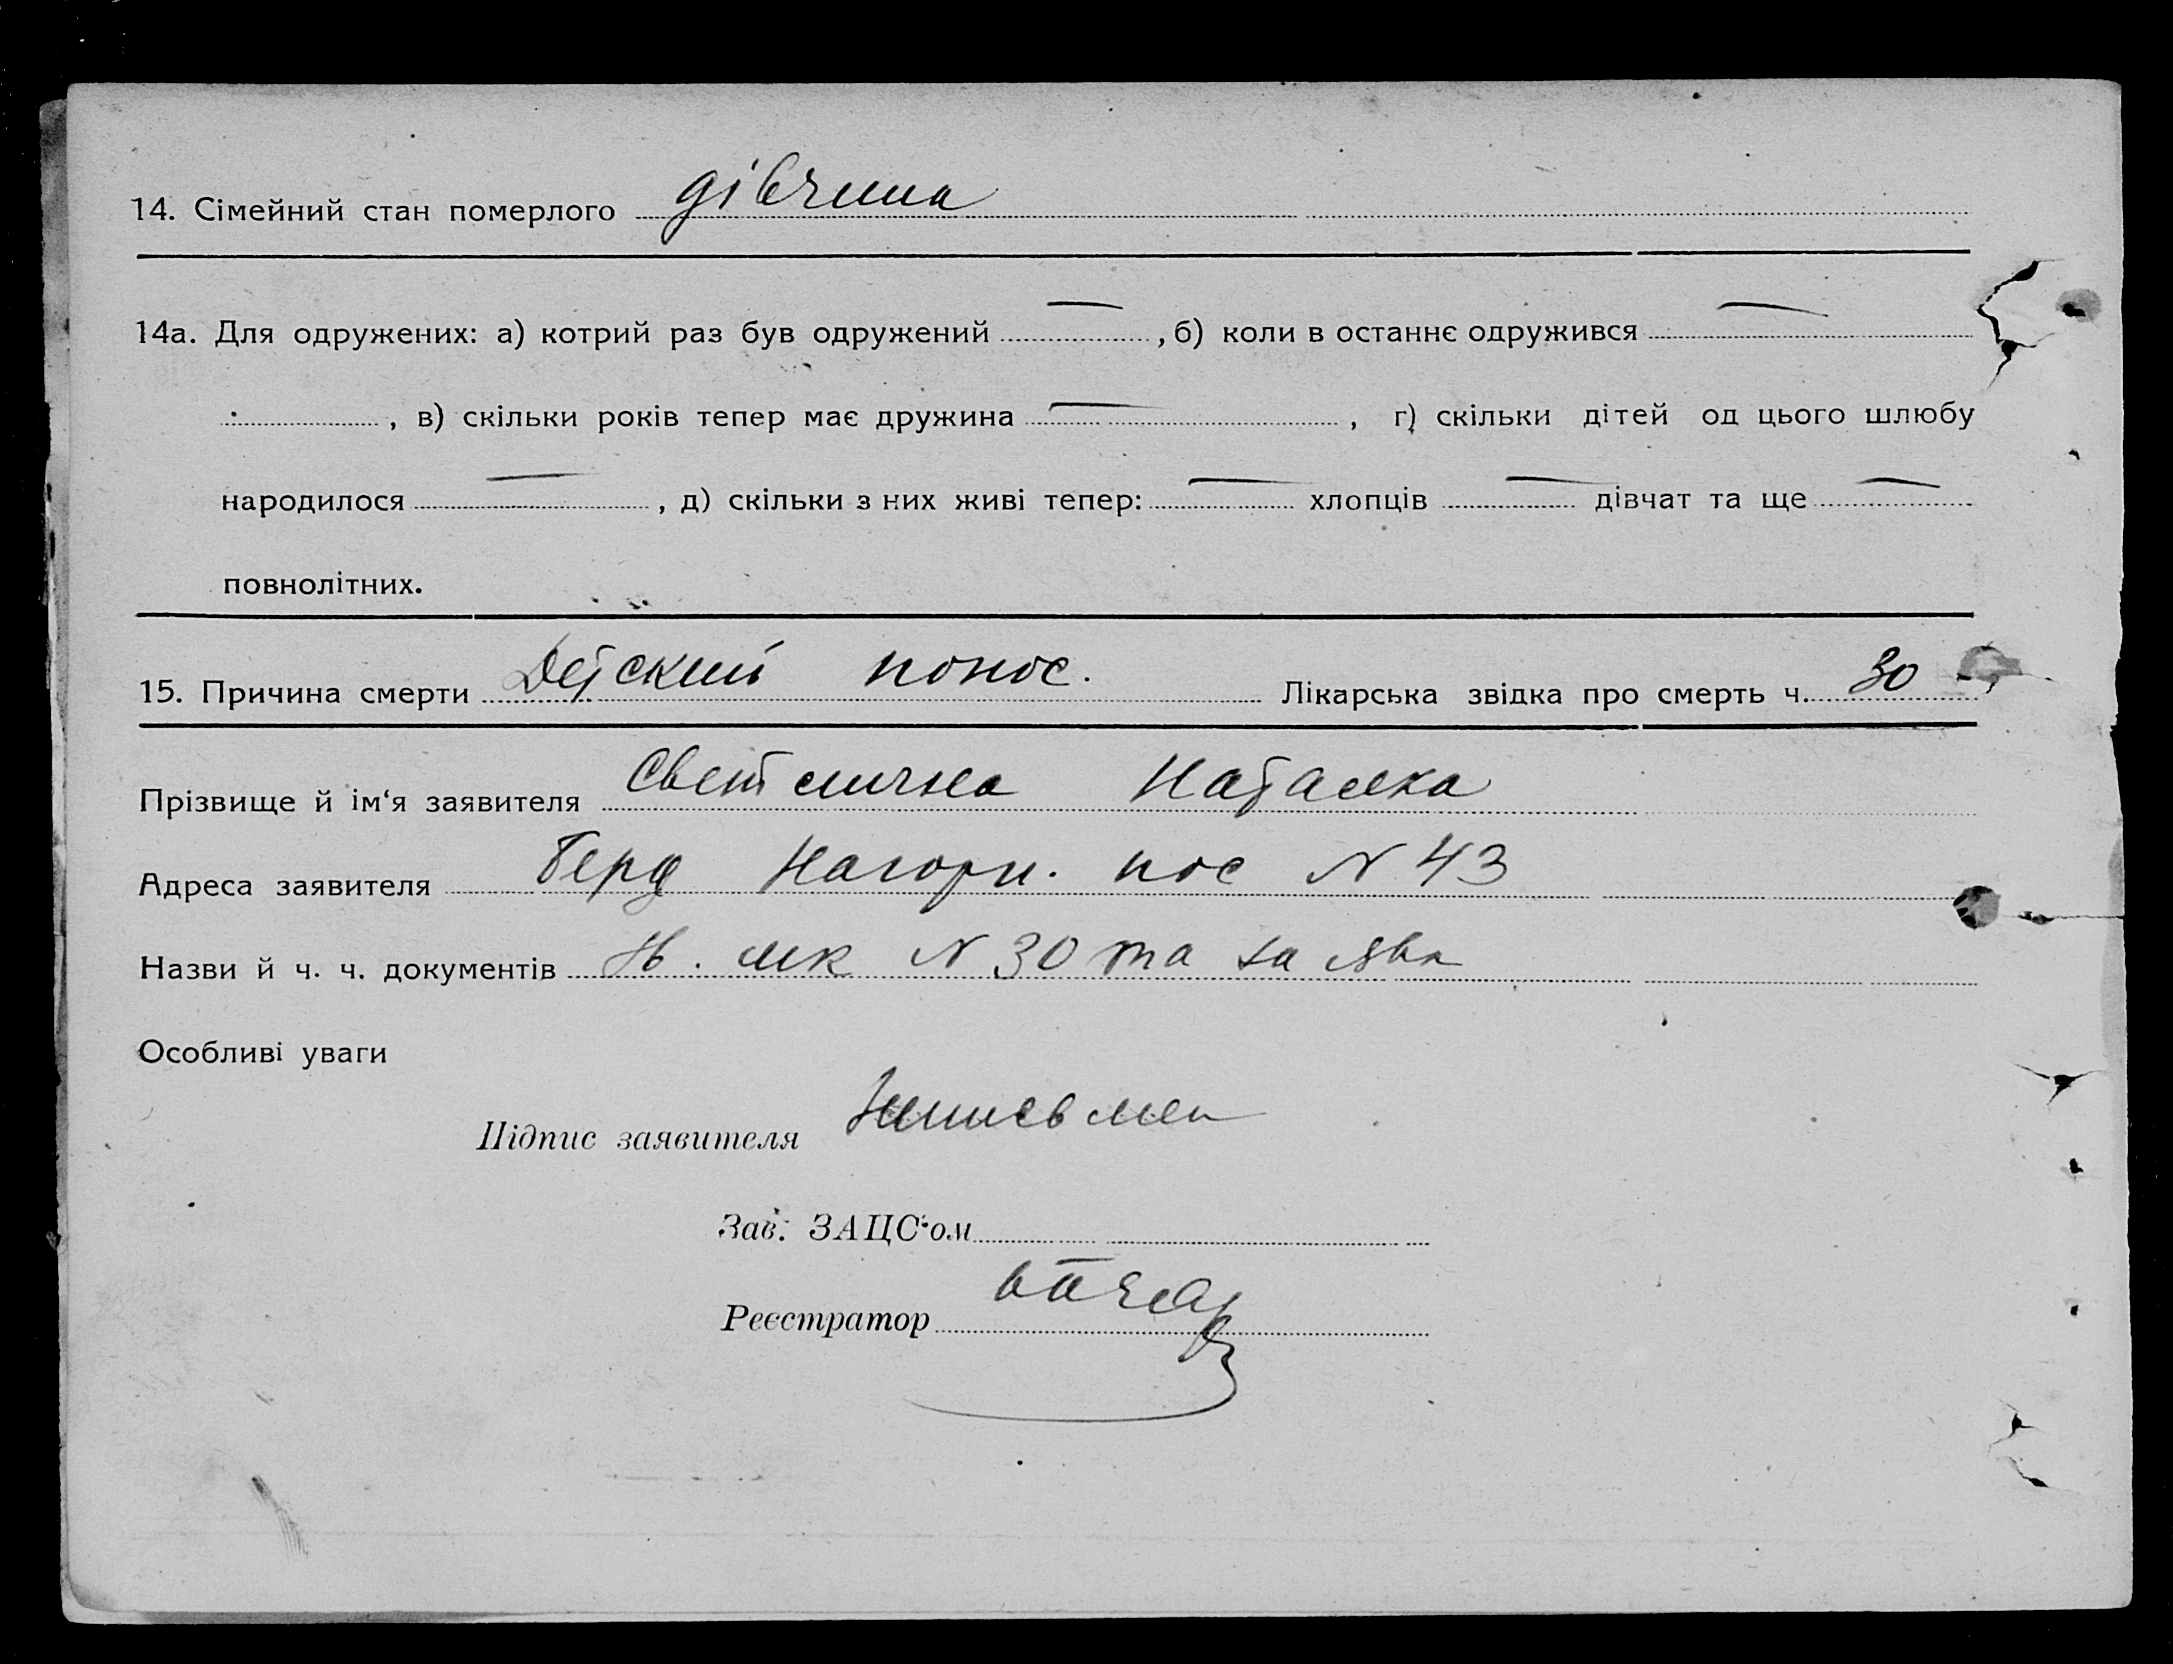 14. Сімейний стан померлого дівчина
14а. Для одружених: а) котрий раз був одружений —, б) коли в останнє одружився —
, в) скільки років тепер має дружина —, г) скільки дітей од цього шлюбу
народилося —, д) скільки з них живі тепер: — хлопців — дівчат та ще —
повнолітних.
15. Причина смерти Детский понос. Лікарська звідка про смерть ч. 30
Прізвище й ім‘я заявителя Наталка
Адреса заявителя Берд Нагорн. пос N 43
Назви й ч. ч. документів N 30 та заява
Особливі уваги
Підпис заявителя
Зав. ЗАЦС‘ом
Реєстратор